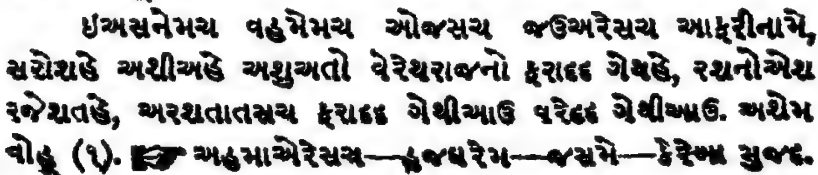 ઇઅસનેમચ વહમેમચ ઓજસચ જઉઅરેસચ આફરીનામે,
સરોશહે અશીઅહે અશુઅતો વેરેથરાજનો ફરાદદ ગેથહે, રશનોએશ
રજેશતહે, અરશતાતસચ ફરાદદ ગેથીઆઉ વરેદદ ગેથીઆઉ. અશેમ
વોહૂ (૧). ☞ અહમાએરેસચ—હજધરેમ—જસમે—કેરેબા મુજદ.